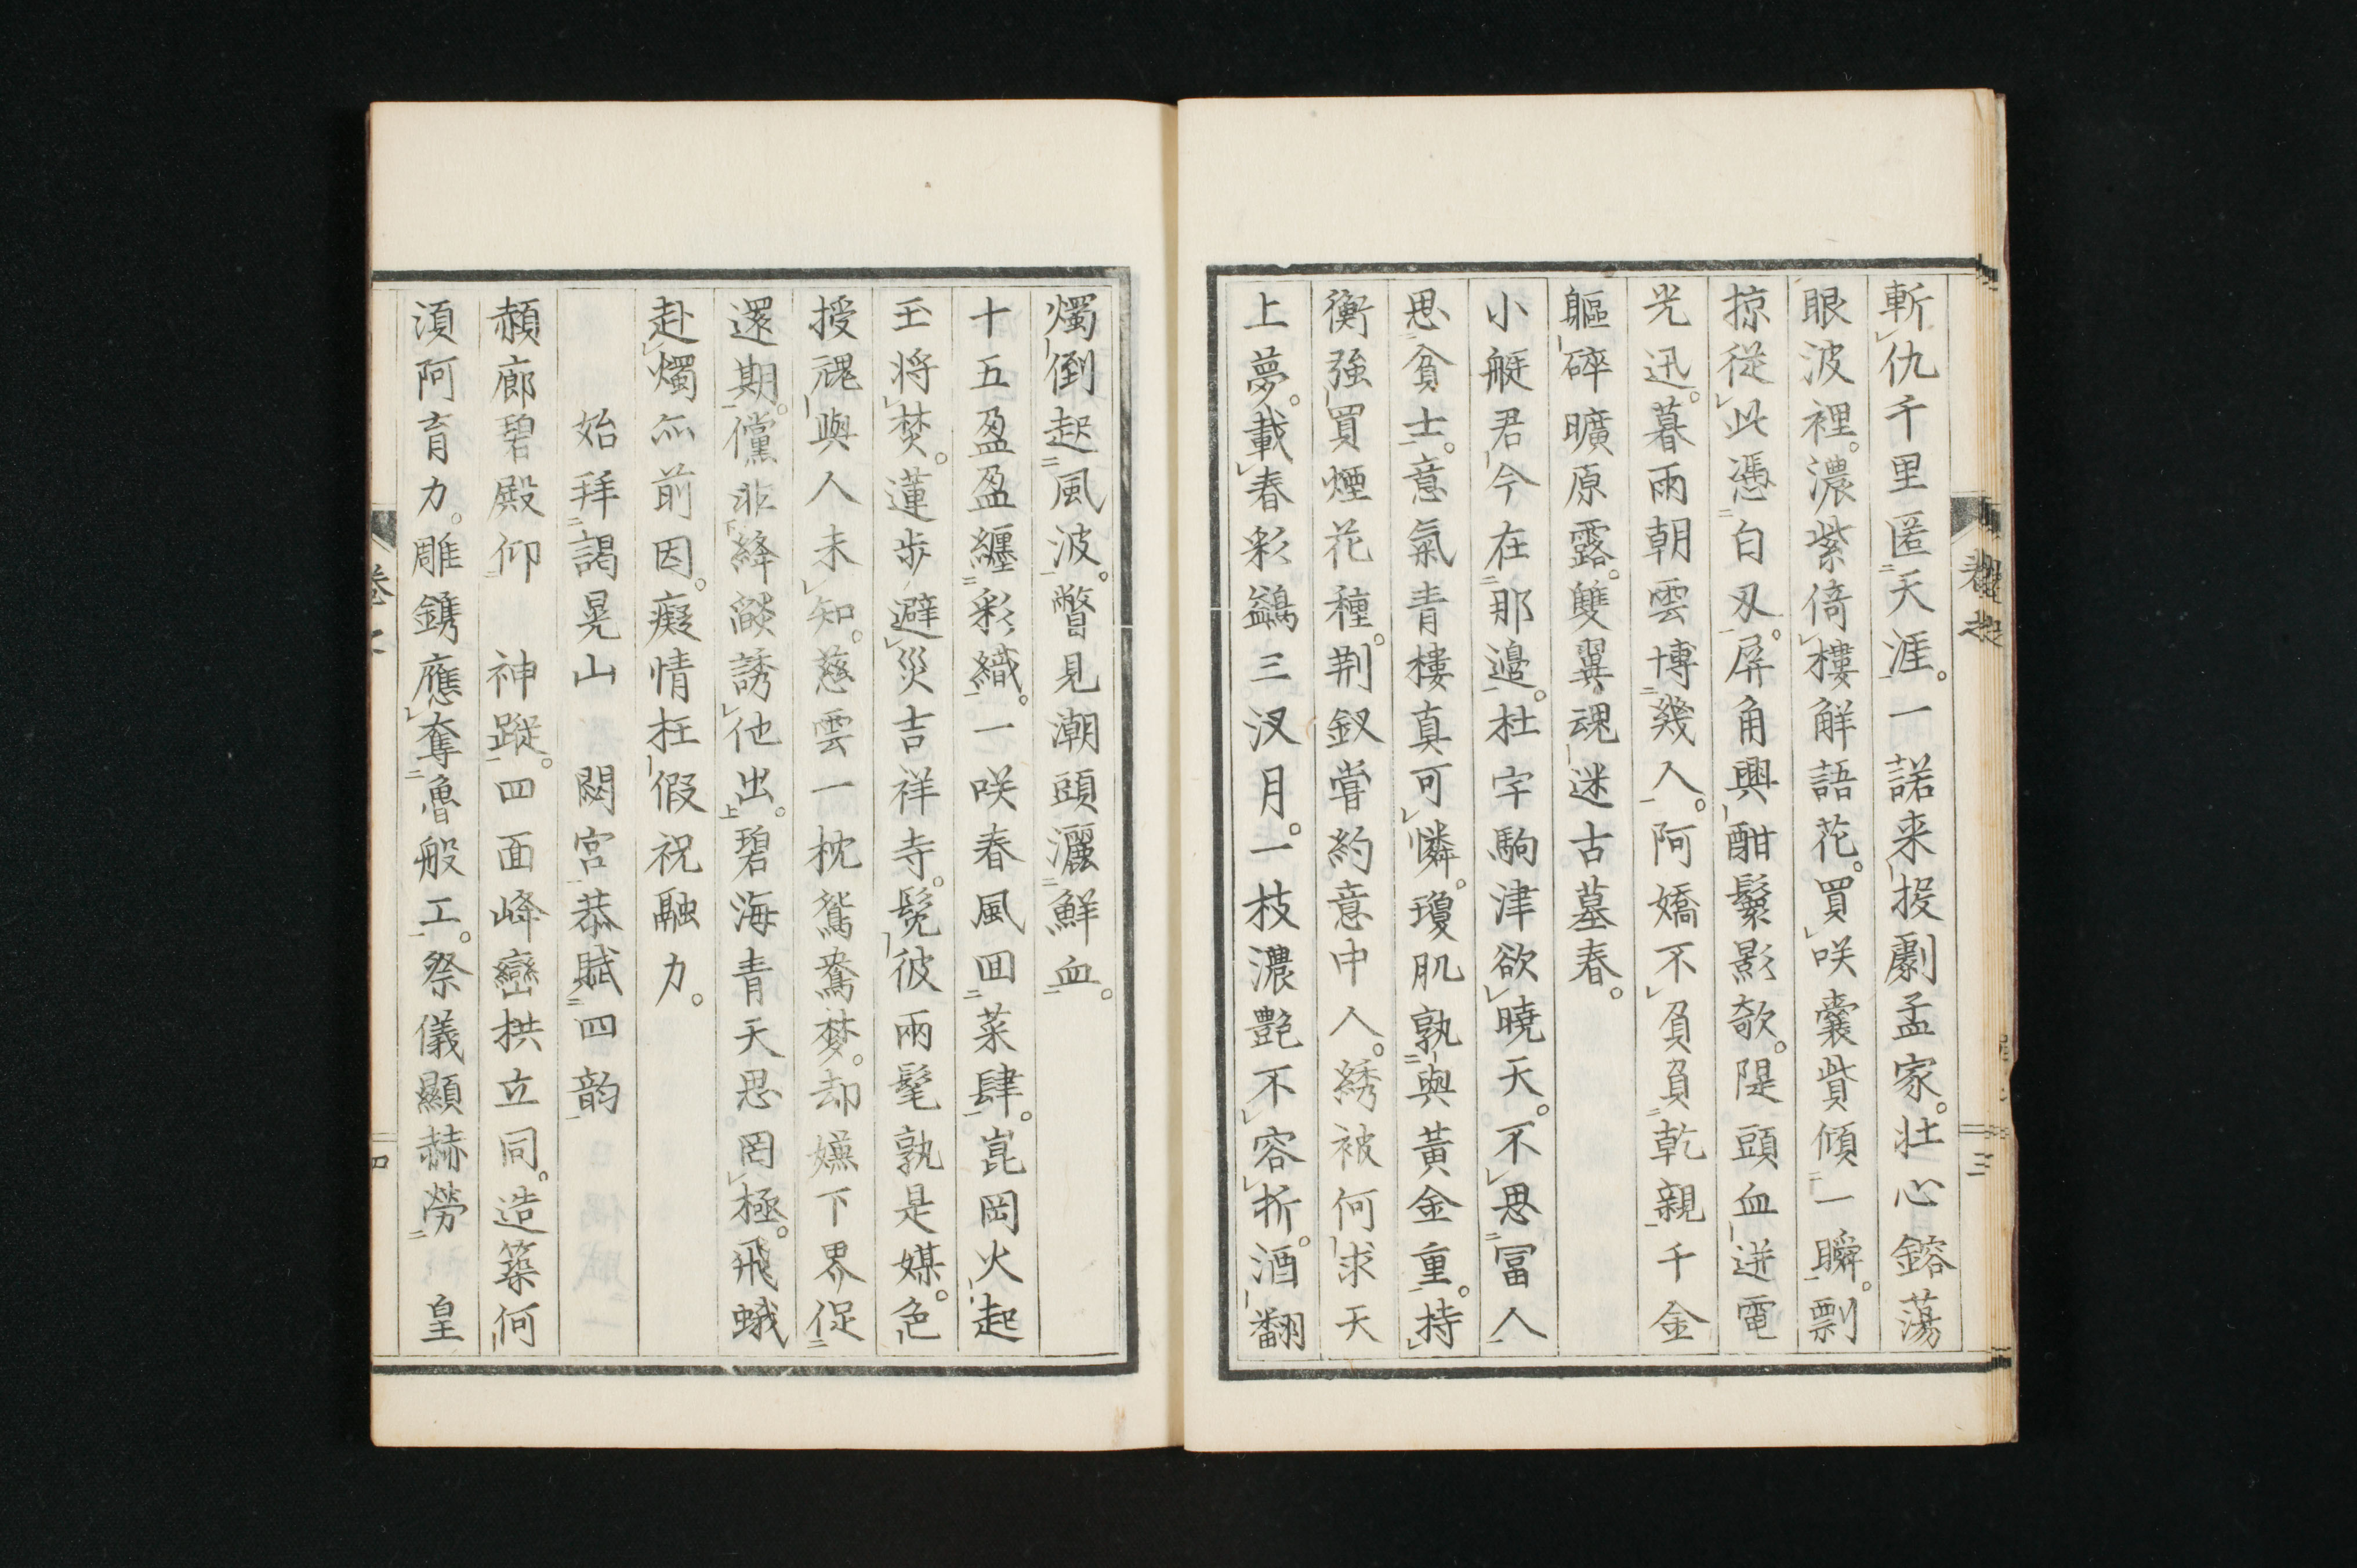 斬仇千里匿天涯。一諾来投劇孟家。壮心鎔蕩
眼波裡。濃紫倚樓解語花。買咲嚢貲傾一瞬。剽
掠従此憑白刃。屏角興酣鬟影欹。隄頭血迸電
光迅。暮雨朝雲博幾人。阿嬌不負負乾親千金
軀碎曠原露。雙翼魂迷古墓春。
小艇君今在那邉。杜宇駒津欲曉天。不思冨人
思貧士。意氣青樓真可憐。瓊肌孰與黄金重。持
衡強買煙花種。荆釵嘗約意中人。綉被何求天
上夢。載春彩鷁三汊月。一枝濃艶不容折。酒翻
燭倒起風波。瞥見潮頭灑鮮血。
十五盈盈纏彩織。一咲春風回菜肆。崑岡火起
玉将焚。蓮歩避災吉祥寺。鬓彼兩髦孰是媒。色
授魂與人未知。慈雲一枕鴛鴦夢。却嫌下界促
還期。儻非絳燄誘他出。碧海青天思罔極。飛蛾
赴燭亦前因。癡情枉假祝融力。
始拜謁晃山　閟宮恭賦四韵
赬廊碧殿仰　神蹤。四面峰巒拱立同。造築何
須阿育力。雕鐫應奪魯般工。祭儀顯赫勞　皇
三
四